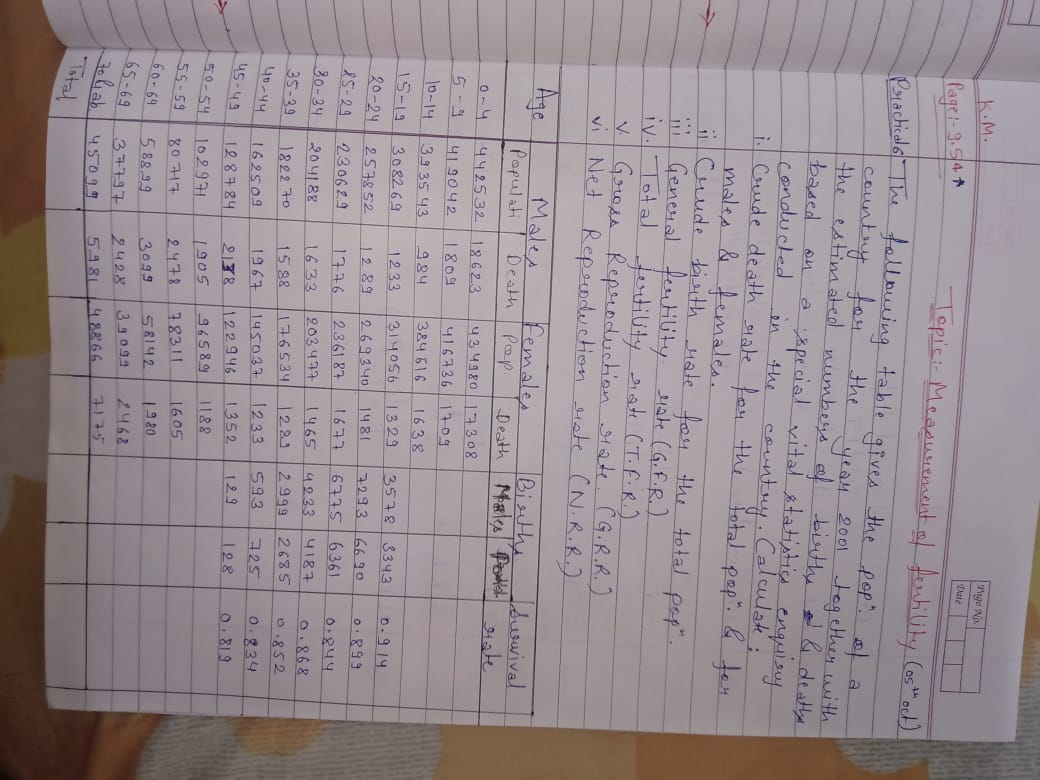 K.M.
Page:- 9.54*
Page No.
Date
Topic:- Measurement of fertility (05th oct)
Practical 6 The following table gives the popn. of a
country for the year 2001 together with
the estimated numbers of births & deaths
based on a special vital statistics enquiry
conducted in the country. Calculate:
i. Crude death rate for the total popn. & for
males & females.
ii Crude birth rate for the total popn.
iii General fertility rate (G.F.R)
iv. Total fertility rate (T.F.R.)
v. Gross Reproduction rate. (G.R.R.)
vi Net Reproduction rate (N.R.R.)
Age Males Females Births Survival
Populati Death Pop. Death Males rate
0-4 442532 18623 434980 17308
5-9 419042 1809 416736 1709
10-14 393543 984 384616 1638
15-19 308269 1233 314056 1329 3578 3343 0.914
20-24 257852 1289 269340 1481 7293 6690 0.899
25-29 230629 1776 236187 1677 6775 6361 0.844
30-34 204188 1633 203477 1465 4233 4187 0.868
35-39 182270 1588 176534 1289 2999 2685 0.852
40-44 162509 1967 145037 1233 593 725 0.834
45-49 128784 122946 1352 129 128 0.819
50-54 102971 1905 96589 1188
55-59 80717 2478 78311 1605
60-64 58899 3099 58142 1980
65-69 37797 2428 39099 2468
70 & ab 45099 5981 48866 7175
Total